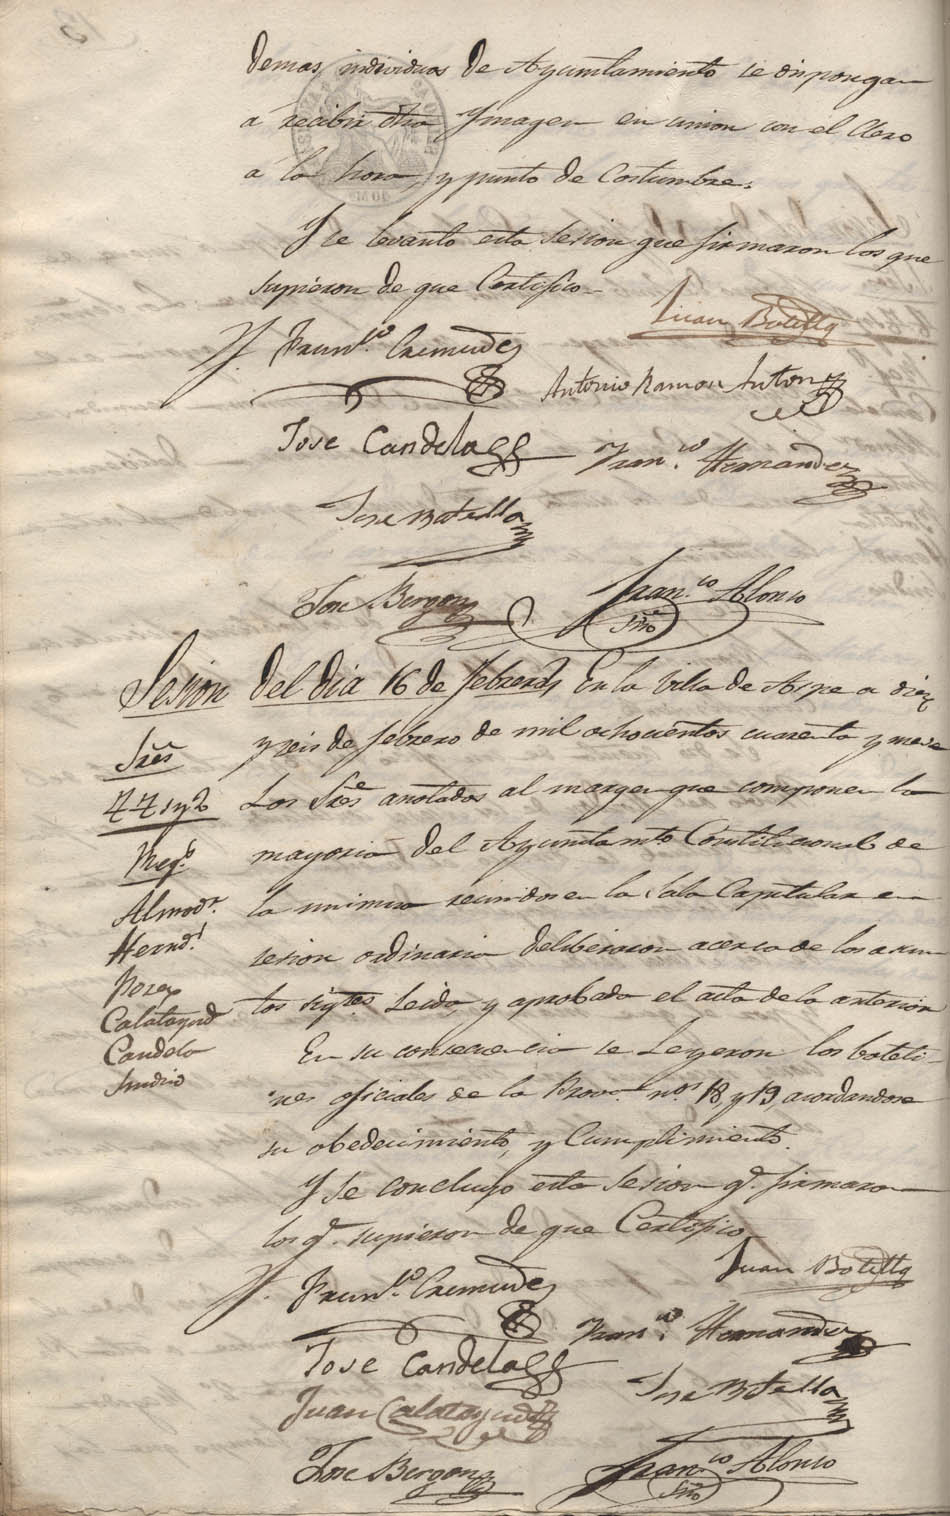 demas individuos de Ayuntamiento se dispongan
á recibir dha Ymagen en union con el Clero
á la hora, y punto de Costumbre.
Y se levantó esta sesion que firmaron los que
supieron de que Certifico=
Juan Botella
Fran.co Cremades
Antonio Ramon Anton
Jose Candela
Fran.co Hernandez
Jose Botella
Jose Bergon
Fran.co Alonso
Srio
Sesion del dia 16 de febrero
En la Villa de Aspe a diez
y seis de febrero de mil ochocientos cuarenta y nueve
Los Sres anotados al margen que componen la
mayoria del Ayuntamto Constitucional de
la misma reunidos en la Sala Capitular en
sesion ordinaria deliberaron acerca de los asun
tos sigtes Leida, y aprobada el acta de la anterior
Sres
1 y 2
Reg.s
Almod.r
Hernd.z
Perez
Calatayud
Candela
Sindico
En su consecuencia se Leyeron los boleti-
nes oficiales de la Prov.a n.os 18 y 19 acordandose
su obedecimiento, y Cumplimiento.
Y se concluyo esta sesion q.e firmaron
los q.e supieron de que Certifico
Juan Botella
Fran.co Cremades
Fran.co Hernandez
Jose Candela
Jose Botella
Juan Calatayud
Jose Bergon
Fran.co Alonso
Srio